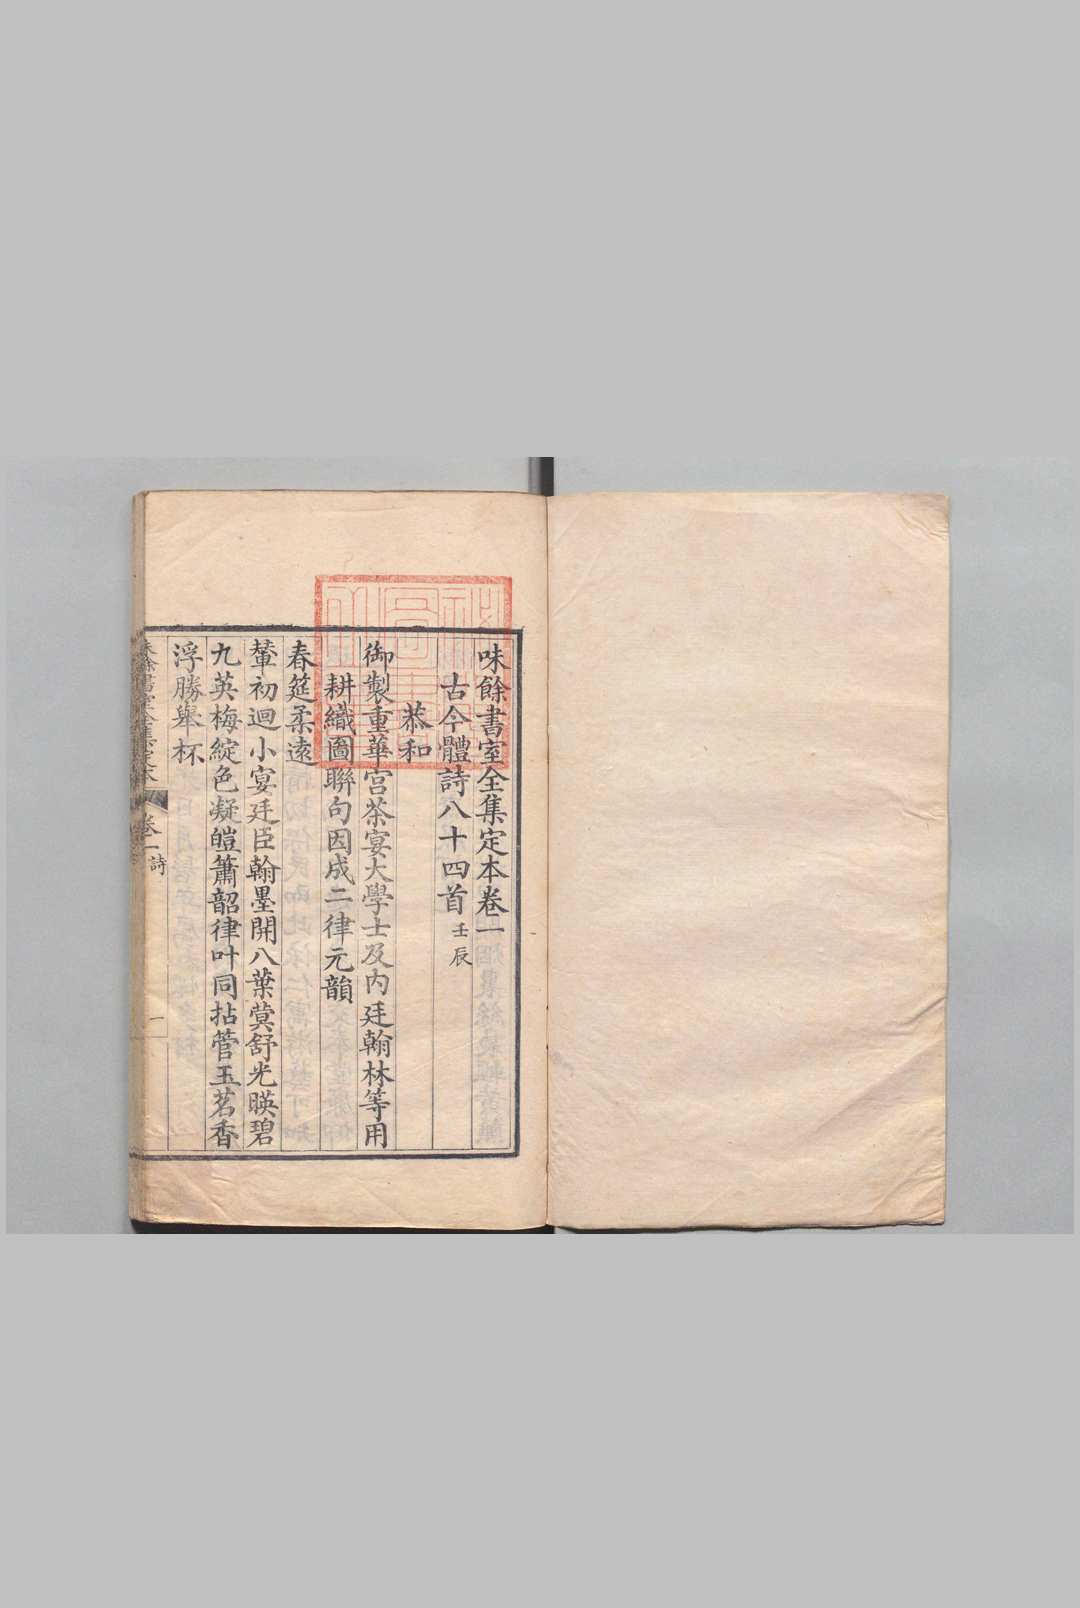 味餘書室全集定本卷二
古今體詩八十四首 壬辰
恭和
御製重華宮茶宴大學士及內廷翰林等用
耕織圖聯句因成二律元韻
春筵柔遠
輦初迴小宴廷臣翰墨開八葉蓂舒光暎碧
九英梅綻色凝皚簫韶律叶同拈管玉茗香
浮勝舉杯
味餘書室全集定本
卷二 詩
一